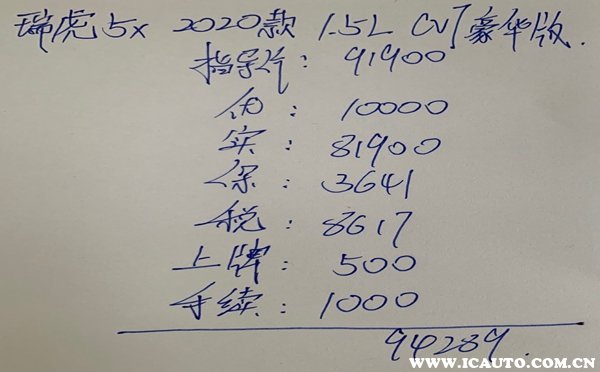 瑞虎5x 2020款 1.5L CVT豪华版.
指导价: 91900
优: 10000
实: 81900
保: 3641
税: 8617
上牌: 500
手续: 1000
94289.
WWW.ICAUTO.COM.CN